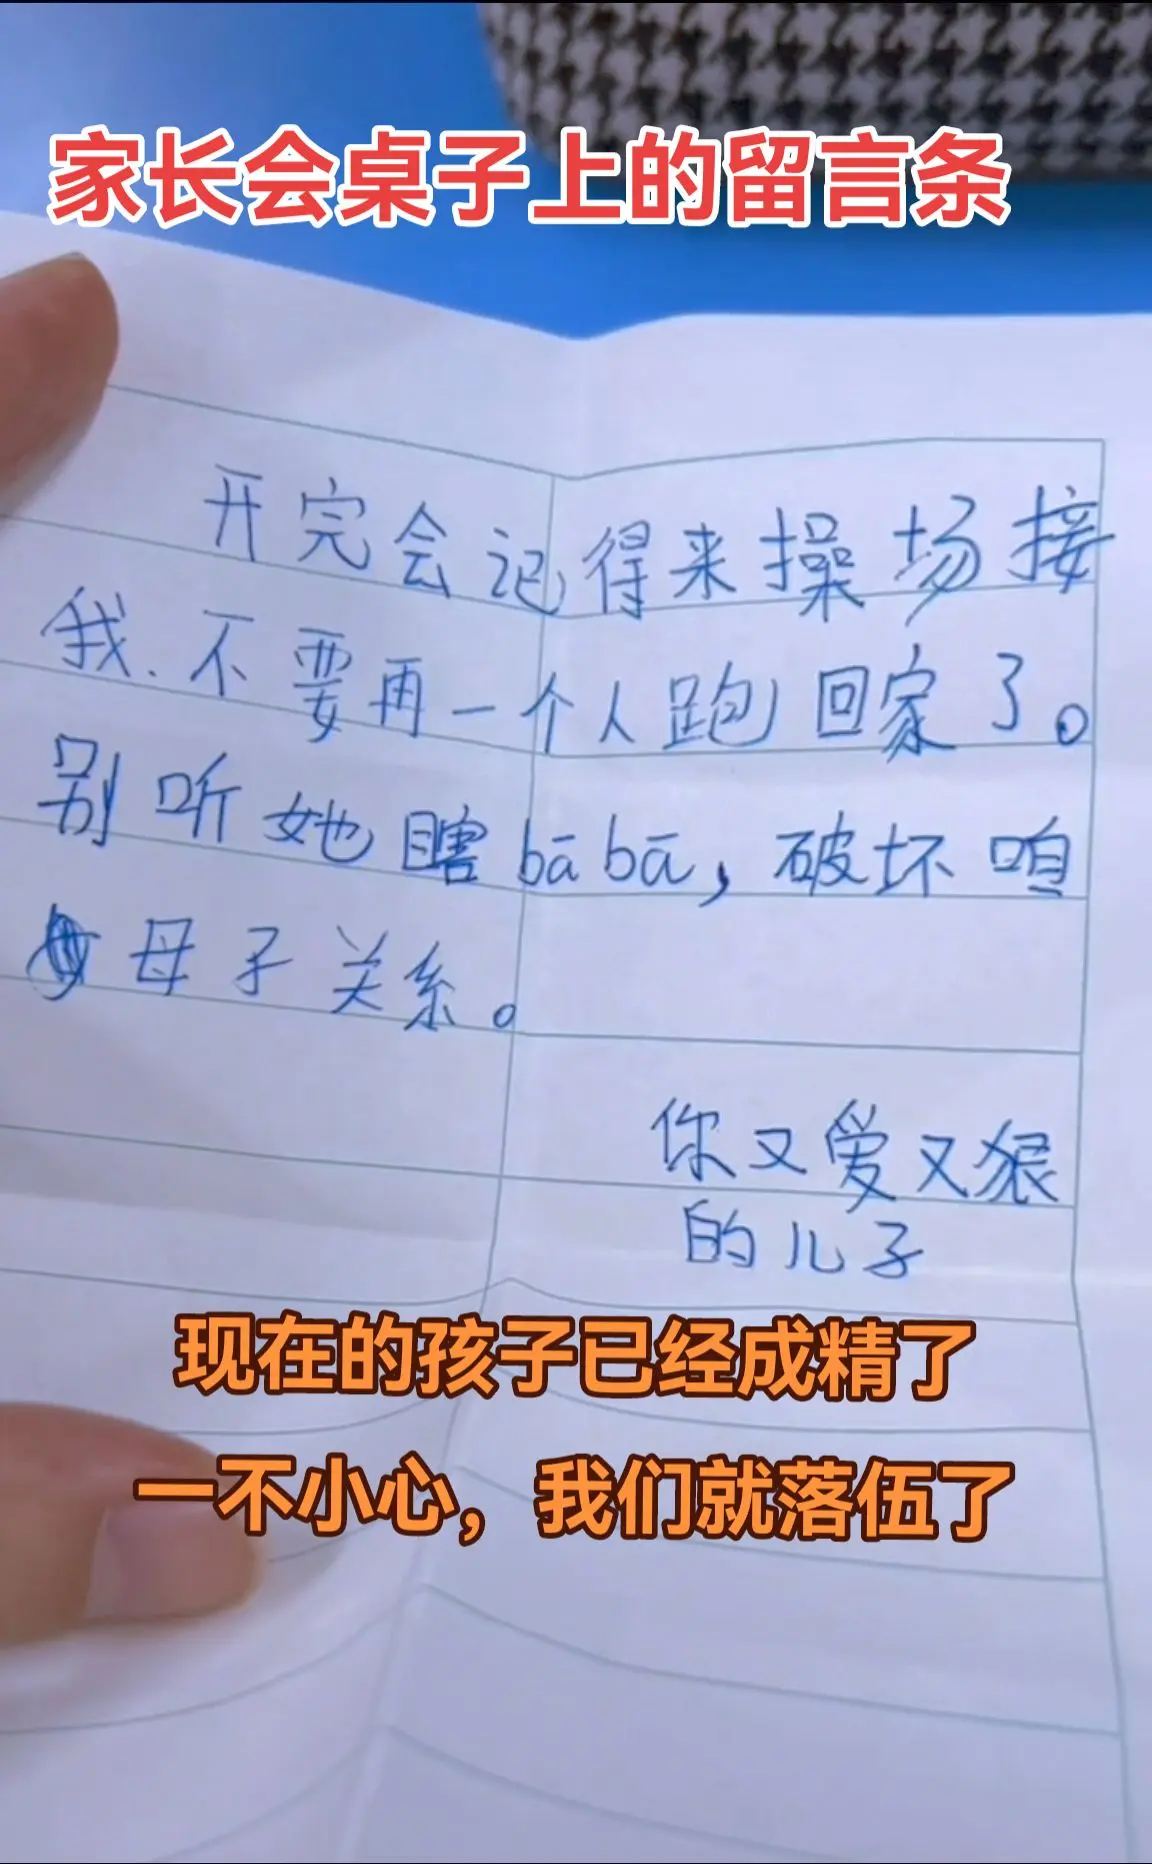 家长会桌子上的留言条
开完会记得来操场接
我.不要再一个人跑回家了。
别听她瞎bābā，破坏咱
母子关系。
你又爱又狠
的儿子
现在的孩子已经成精了
一不小心，我们就落伍了